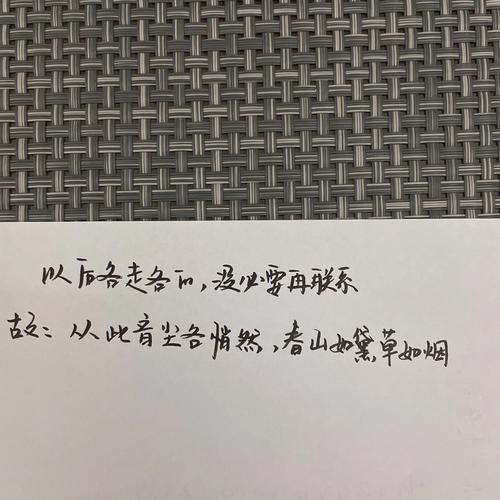 以后各走各的，没必要再联系
古文：从此音尘各悄然，春山如黛草如烟